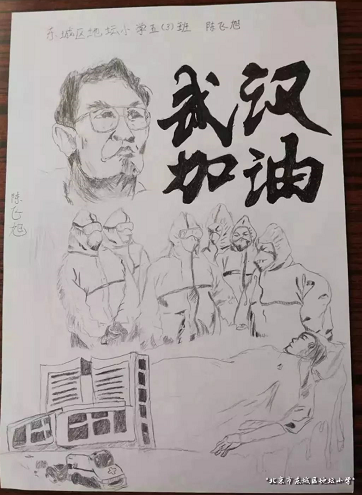 东城区地坛小学五(3)班 陈飞旭
武汉
加油
陈飞旭
"北京市东城区地坛小学"